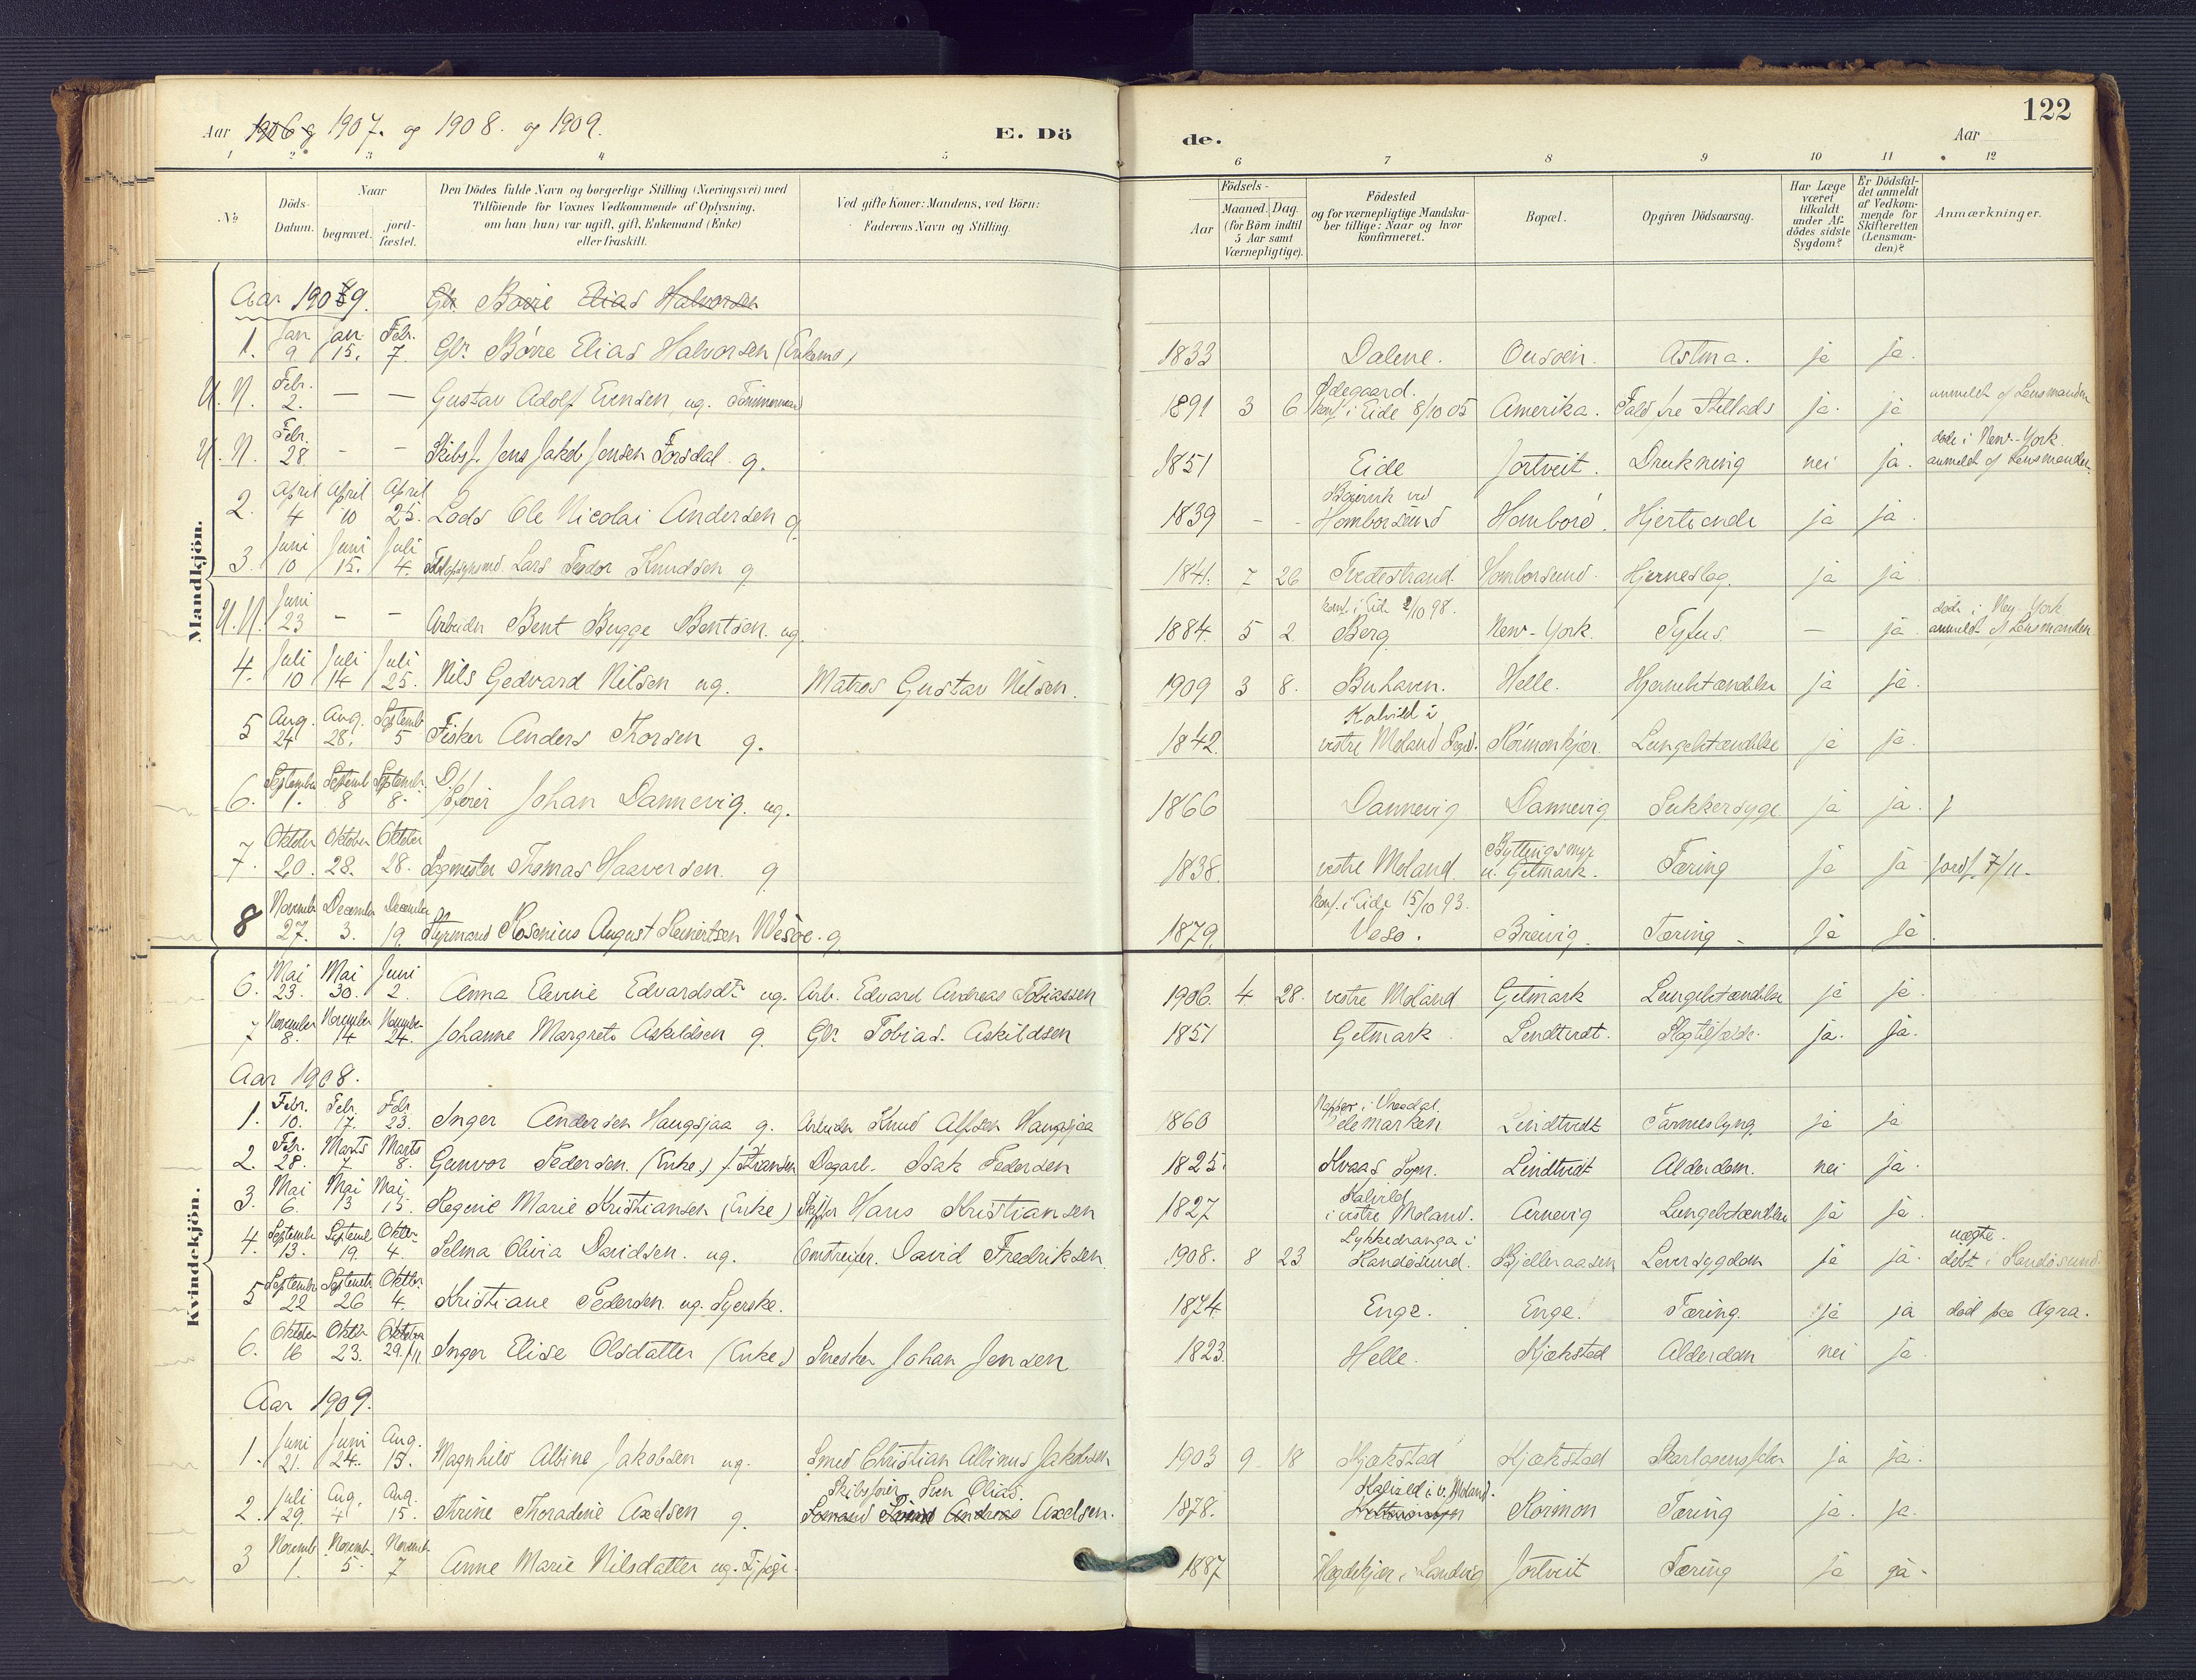 122
Aar 1906 og 1907. og 1908. og 1909.
E. Dö
de.
Aar
1 2 3 4 5 6 7 8 9 10 11 12
No
Döds-Datum.
Naar
begravet.
jord-fæstet.
Den Dödes fulde Navn og borgerlige Stilling (Næringsvei) med
Tilföiende for Voxnes Vedkommende af Oplysning,
om han (hun) var ugift, gift, Enkemand (Enke)
eller fraskilt.
Ved gifte Koner: Mandens, ved Börn:
Faderens Navn og Stilling.
Födsels-
Aar
Maaned. Dag.
(for Börn indtil
5 Aar samt
Værnepligtige).
Födested
og for værnepligtige Mandska-
ber tillige: Naar og hvor
konfirmeret.
Bopæl.
Opgiven Dödsaarsag.
Har Læge
været
tilkaldt
under Af-
dödes sidste
Sygdom?
Er Dödsfal-
det anmeldt
af Vedkom-
mende for
Skifteretten
(Lensman-
den)?
Anmærkninger.
Mandkjön.
Aar 1909. Gbr. Børre Elias Halvorsen
1. Jan. 9 Jan. 15. Febr. 7. Gbr. Børre Elias Halvorsen (Enkemd) 1833 Dalene. Astma. ja ja.
U. N. Febr. 2. — — Gustav Adolf Evensen ug. Tømmermand 1891 3 6 Ødegaard. konf. i Eide 8/10 05 Amerika. Fald fra Stillads ja. ja anmeldt af Lensmanden
U. N. Febr. 28 - - Skibsf. Jens Jakob Jensen Forsdal g. 1851 Eide Jortveit. Drukning nei ja. døde i New-York. anmeldt af Lensmanden.
2. April 4 April 10 April 25. Lods Ole Nicolai Andersen g. 1839 - - ved Homborsund Hombors. ja ja.
3. Juni 10 Juni 15. Juli 4. Lars Teodor Knudsen g. 1841. 7 26 Tvedestrand. Homborsund. Hjerneslag. ja ja
U. N. Juni 23 - - Arbeider Bent Bugge Bentsen. ug. 1884. 5 2 konf. i Eide 2/10 98. Berg New-York. Tyfus — ja. døde i New-York anmeldt af Lensmanden
4. Juli 10 Juli 14 Juli 25. Nils Gedvard Nilsen ug. Matros Gustav Nilsen. 1909 3 8. Buhaven. Helle. Hjernebetændelse ja ja.
5 Aug. 24 Aug. 28. Septemb 5 Fisker Anders Thorsen g. 1842. Kalvild i vestre Moland Sogn. Rörmonkjær. Lungebetændelse ja ja.
6. September 1. Septemb 8 Septembr. 8. Johan Dannevig. ug. 1866 Dannevig Dannevig Sukkersyge ja ja.
7. Oktober 20. Oktober 28. Oktober 28. Sagmester Thomas Haaversen. g 1838. vestre Moland. Byttingsmyr u. Getmark. Tæring ja ja jordf. 7/11.
8 Novemb 27. December 3. December 19. Styrmand Rosenius August Reinertsen Wesøe. g. 1879. konf. i Eide 15/10 93. Vesø. Breivig. Tæring ja ja.
Kvindekjön.
6. Mai 23. Mai 30. Juni 2. Anna Elevine Edvardsdt. ug. Arb. Edvard Andreas Tobiassen 1906. 4 28. vestre Moland Getmark Lungebetændelse ja ja.
7 November 8. November 14 November 24. Johanne Margrete Askildsen g. Gbr. Tobias. Askildsen 1851 Getmark Lendtvedt. Slagtilfælde. ja. ja.
Aar 1908.
1. Febr. 10. Febr. 17. Febr. 23. Inger Andersen Haugsjaa g. Arbeider Knud Alfsen Haugsjaa 1860 i Vraadal. Telemarken Lindtvedt Tarmeslyng. ja ja
2. Febr. 28. Marts 7. Marts 8. Gunvor Pedersen. (Enke) Dagarb. Isak Pedersen 1825. Kvaas Sogn. Lindtvedt Alderdom. nei ja.
3. Mai 6. Mai 13 Mai 15. Regene Marie Kristiansen (Enke) Skipper Hans Kristiansen 1827 Kalvild i vestre Moland. Arnevig Lungebetændelse ja ja.
4. Septembr 13. Septemb 19 Oktbr 4. Selma Olivia Davidsen. ug. Omstreifer. David Fredriksen 1908. 8 23 Lykkedranga i Randøsund. Bjelleraasen Leversygdom ja ja. uægte. døbt i Randøsund.
5 September 22 Septembr 26 Oktbr. 4. Kristiane Pedersen ug. Syerske. 1874. Enge. Enge. Tæring. ja ja død paa Ogra.
6. Oktober 16 Oktbr 23. Oktober 29. Inger Elise Olsdatter (Enke) Snedker Johan Jensen 1823. Helle. Kjækstad Alderdom nei ja.
Aar 1909.
1. Juni 21. Juni 24. Aug. 15. Magnhild Albine Jakobsen ug. Smed Christian Albinus Jakobsen 1903 9 18 Kjækstad Kjækstad Skarlagensfeber ja ja.
2. Juli 29. Aug. 4 Aug. 15. Thrine Thoradine Axelsen g. Skibsfører Sven Olias. Axelsen. 1878. Kalvild i v. Moland. Rörmon Tæring ja. ja.
3 Novemb. 1. Novemb. 5. Novemb. 7 Anne Marie Nilsdatter ug. Tjpige. 1887 i Landvig Jortveit Tæring ja ja.